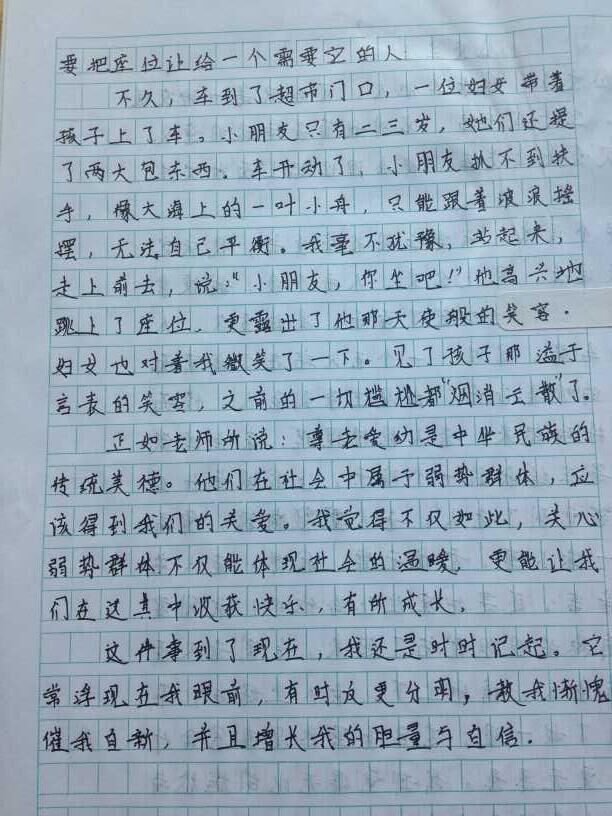 要把座位让给一个需要它的人
不久，车到了超市门口，一位妇女带着
孩子上了车。小朋友只有二三岁，她们还提
了两大包东西。车开动了，小朋友扒不到扶
手，像大海上的一叶小舟，只能跟着浪浪摇
摆，无法自己平衡。我毫不犹豫，站起来，
走上前去，说：“小朋友，你坐吧！”他高兴地
跳上了座位，更露出了他那天使般的笑容．
妇女也对着我微笑了一下。见了孩子那溢于
言表的笑容，之前的一切尴尬都“烟消云散”了。
正如老师所说：尊老爱幼是中华民族的
传统美德。他们在社会中属于弱势群体，应
该得到我们的关爱。我觉得不仅如此，关心
弱势群体不仅能体现社会的温暖，更能让我
们在这其中收获快乐，有所成长．
这件事到了现在，我还是时时记起。它
常浮现在我眼前，有时反更分明，教我惭愧
催我自新，并且增长我的胆量与自信．